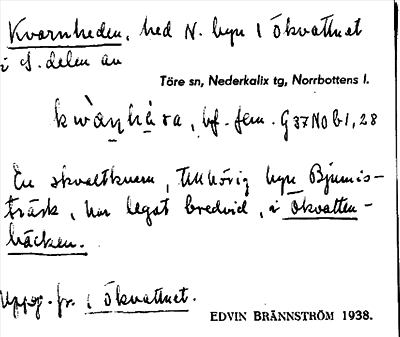 Kvarnheden, hed N. byn 1 Ökvattnet
i S. delen av
Töre sn, Nederkalix tg, Norrbottens l.
bf. fem. G 37 NO b 1, 28
En skvaltkvarn, tillhörig byn Bjumis-
träsk, har legat bredvid, i Ökvatten-
bäcken.
Uppg. fr. 1 Ökvattnet.
EDVIN BRÄNNSTRÖM 1938.